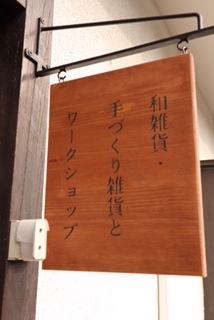 和雑貨・
手づくり雑貨と
ワークショップ